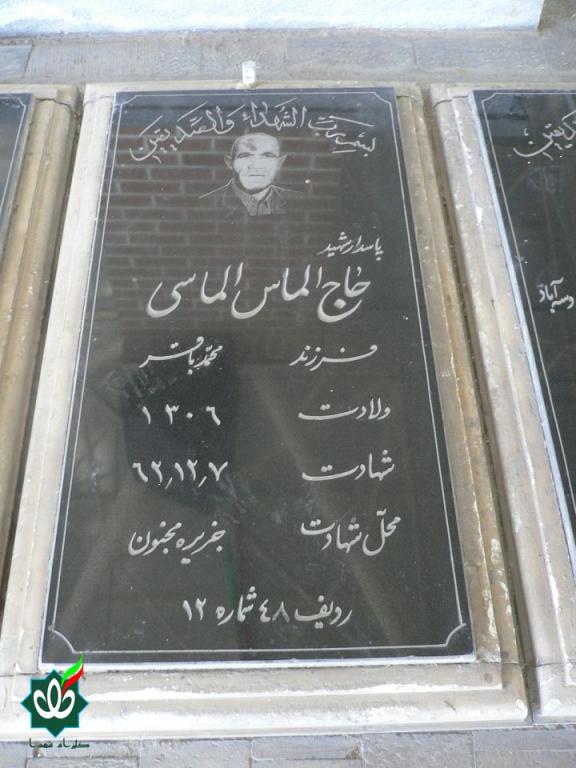 بسم رب الشهداء والصدیقین
پاسدار شهید
حاج الماس الماسی
فرزند محمد باقر
ولادت ۱۳۰۶
شهادت ۶۲٫۱۲٫۷
محل شهادت جزیره مجنون
ردیف ۴۸ شماره ۱۲
گلزار شهدا